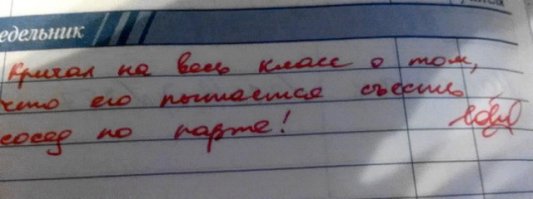 едельник
Кричал на весь класс о том,
что его пытается съесть
сосед по парте!